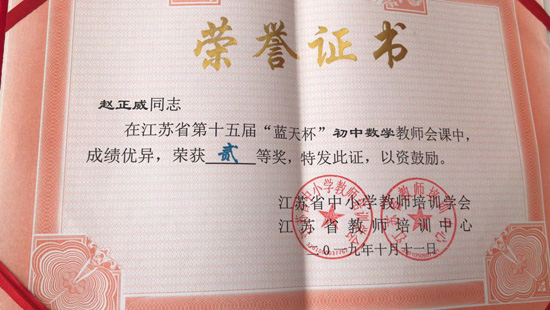 荣誉证书
赵正威同志
在江苏省第十五届“蓝天杯”初中数学教师会课中，
成绩优异，荣获贰等奖，特发此证，以资鼓励。
江苏省中小学教师培训学会
江苏省教师培训中心
二〇一九年十月十一日